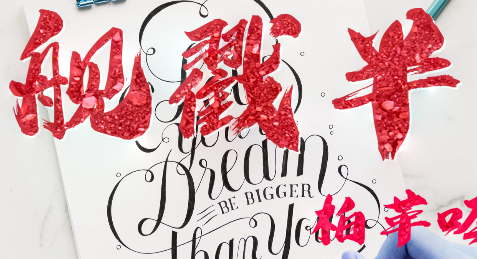 舰戳半
Your
Dream
BE BIGGER
than You
柏革